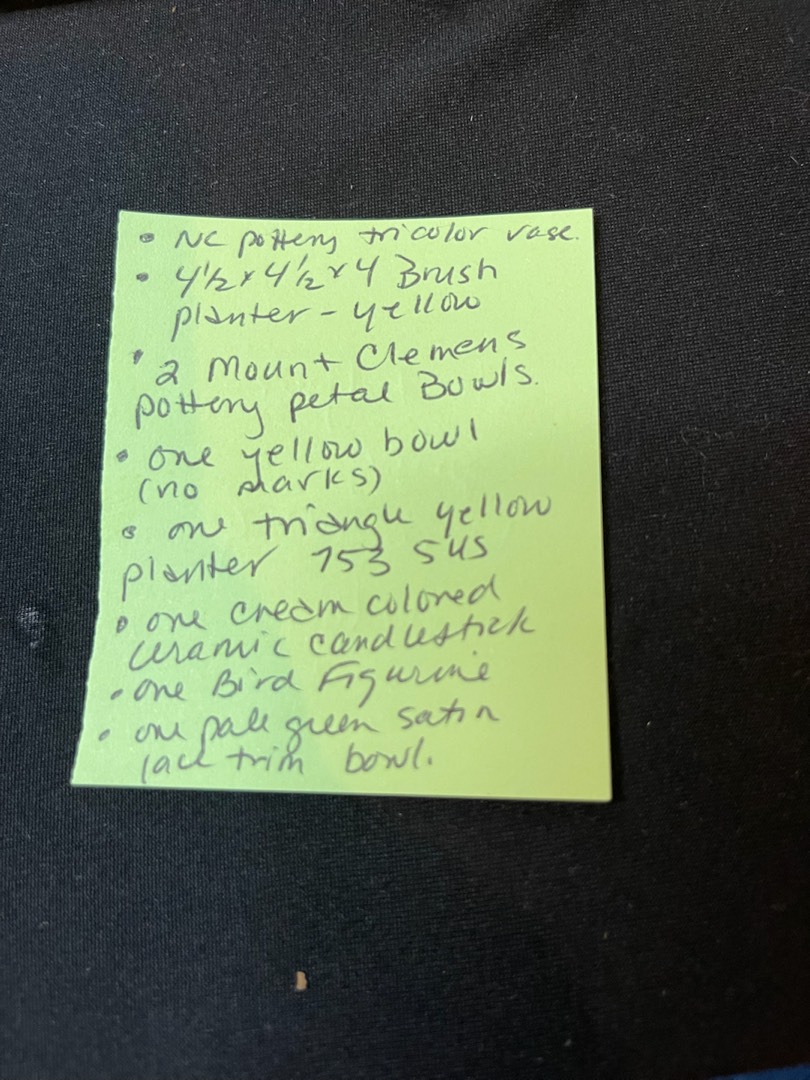 • NC pottery tricolor vase.
• 4½ x 4½ x 4 Brush
planter - yellow
• 2 Mount Clemens
pottery petal Bowls.
• one yellow bowl
(no marks)
• one triangle yellow
planter 753 SUS
• one cream colored
ceramic candlestick
• one Bird Figurine
• one pale green satin
lace trim bowl.